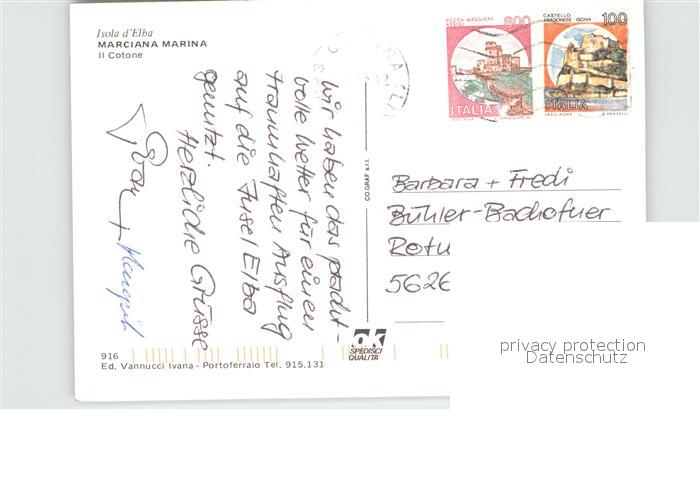 Isola d'Elba
MARCIANA MARINA
Il Cotone
ROCCA MAGGIORE
ASSISI
800
ITALIA
CASTELLO
ARAGONESE ISCHIA
100
ITALIA
Wir haben das pracht-
volle Wetter für einen
traumhaften Ausflug
auf die Insel Elba
genutzt.
Herzliche Grüsse
+ Margrit
CO.GRAF s.r.l.
Barbara + Fredi
Bühler-Bachofner
5626
OK
SPEDISCI
QUALITA'
916
Ed. Vannucci Ivana - Portoferraio Tel. 915.131
privacy protection
Datenschutz